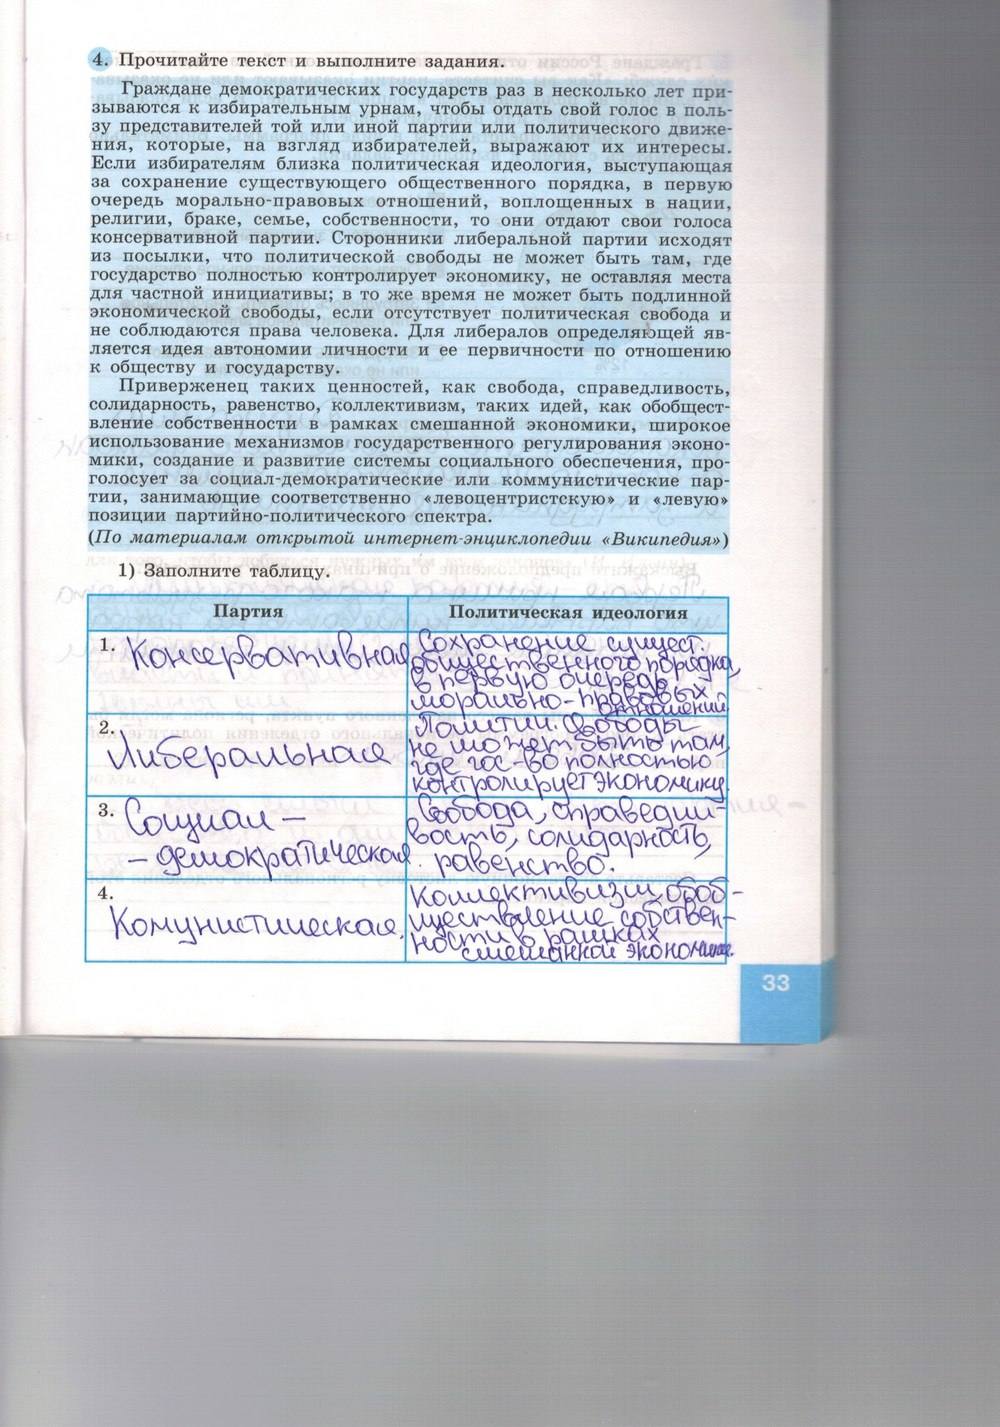 4. Прочитайте текст и выполните задания.
Граждане демократических государств раз в несколько лет при-
зываются к избирательным урнам, чтобы отдать свой голос в поль-
зу представителей той или иной партии или политического движе-
ния, которые, на взгляд избирателей, выражают их интересы.
Если избирателям близка политическая идеология, выступающая
за сохранение существующего общественного порядка, в первую
очередь морально-правовых отношений, воплощенных в нации,
религии, браке, семье, собственности, то они отдают свои голоса
консервативной партии. Сторонники либеральной партии исходят
из посылки, что политической свободы не может быть там, где
государство полностью контролирует экономику, не оставляя места
для частной инициативы; в то же время не может быть подлинной
экономической свободы, если отсутствует политическая свобода и
не соблюдаются права человека. Для либералов определяющей яв-
ляется идея автономии личности и ее первичности по отношению
к обществу и государству.
Приверженец таких ценностей, как свобода, справедливость,
солидарность, равенство, коллективизм, таких идей, как обобщест-
вление собственности в рамках смешанной экономики, широкое
использование механизмов государственного регулирования эконо-
мики, создание и развитие системы социального обеспечения, про-
голосует за социал-демократические или коммунистические пар-
тии, занимающие соответственно «левоцентристскую» и «левую»
позиции партийно-политического спектра.
(По материалам открытой интернет-энциклопедии «Википедия»)
1) Заполните таблицу.
Партия Политическая идеология
1. Консервативная
Сохранение сущест.
общественного порядка,
в первую очередь
морально-правовых
отношений
2.
Либеральная
Полит. свободы
не может быть там,
где гос-во полностью
контролирует экономику.
3. Социал –
– демократическая
Свобода, справедли-
вость, солидарность,
равенство.
4.
Комунистическая.
Коллективизм, обоб-
ществление собствен-
ности в рамках
смешанной экономики.
33